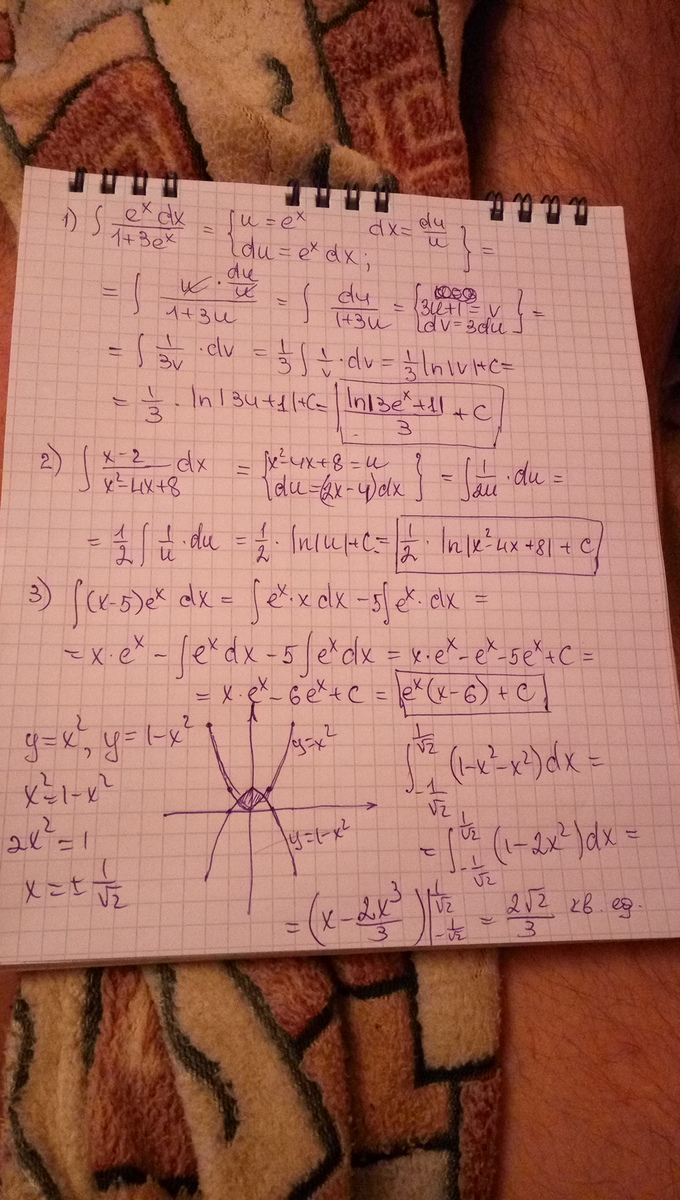 1) ∫ e^x dx / (1+3e^x) = { u = e^x   dx = du/u
du = e^x dx; } =
= ∫ (u · du/u) / (1+3u) = ∫ du/(1+3u) = { 3u+1 = v
dv = 3du } =
= ∫ 1/(3v) · dv = 1/3 ∫ 1/v · dv = 1/3 ln|v|+C =
= 1/3 · ln|3u+1|+C = ln|3e^x+1|/3 + C
2) ∫ (x-2)/(x²-4x+8) dx = { x²-4x+8 = u
du = (2x-4)dx } = ∫ 1/(2u) · du =
= 1/2 ∫ 1/u · du = 1/2 · ln|u|+C = 1/2 · ln|x²-4x+8| + C
3) ∫(x-5)e^x dx = ∫ e^x · x dx - 5∫ e^x · dx =
= x · e^x - ∫ e^x dx - 5∫ e^x dx = x · e^x - e^x - 5e^x + C =
= x · e^x - 6e^x + C = e^x (x-6) + C
y = x², y = 1-x²
x² = 1-x²
2x² = 1
x = ± 1/√2
y=x²
y=1-x²
∫_{-1/√2}^{1/√2} (1-x²-x²)dx =
= ∫_{-1/√2}^{1/√2} (1-2x²)dx =
= (x - 2x³/3) |_{-1/√2}^{1/√2} = 2√2/3 кв. ед.